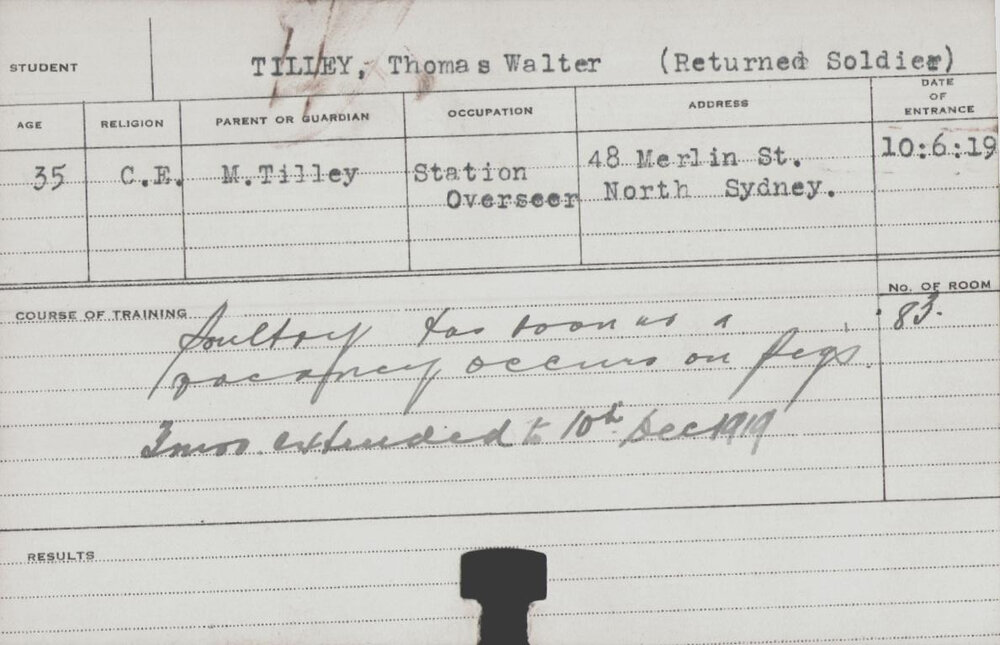 STUDENT TILLEY, Thomas Walter (Returned Soldier)
AGE RELIGION PARENT OR GUARDIAN OCCUPATION ADDRESS DATE OF ENTRANCE
35 C.E. M.Tilley Station Overseer 48 Merlin St. North Sydney. 10:6:19
COURSE OF TRAINING No. OF ROOM
Poultry & as soon as a 83.
vacancy occurs on pigs.
3mos. extended to 10th Dec 1919
RESULTS